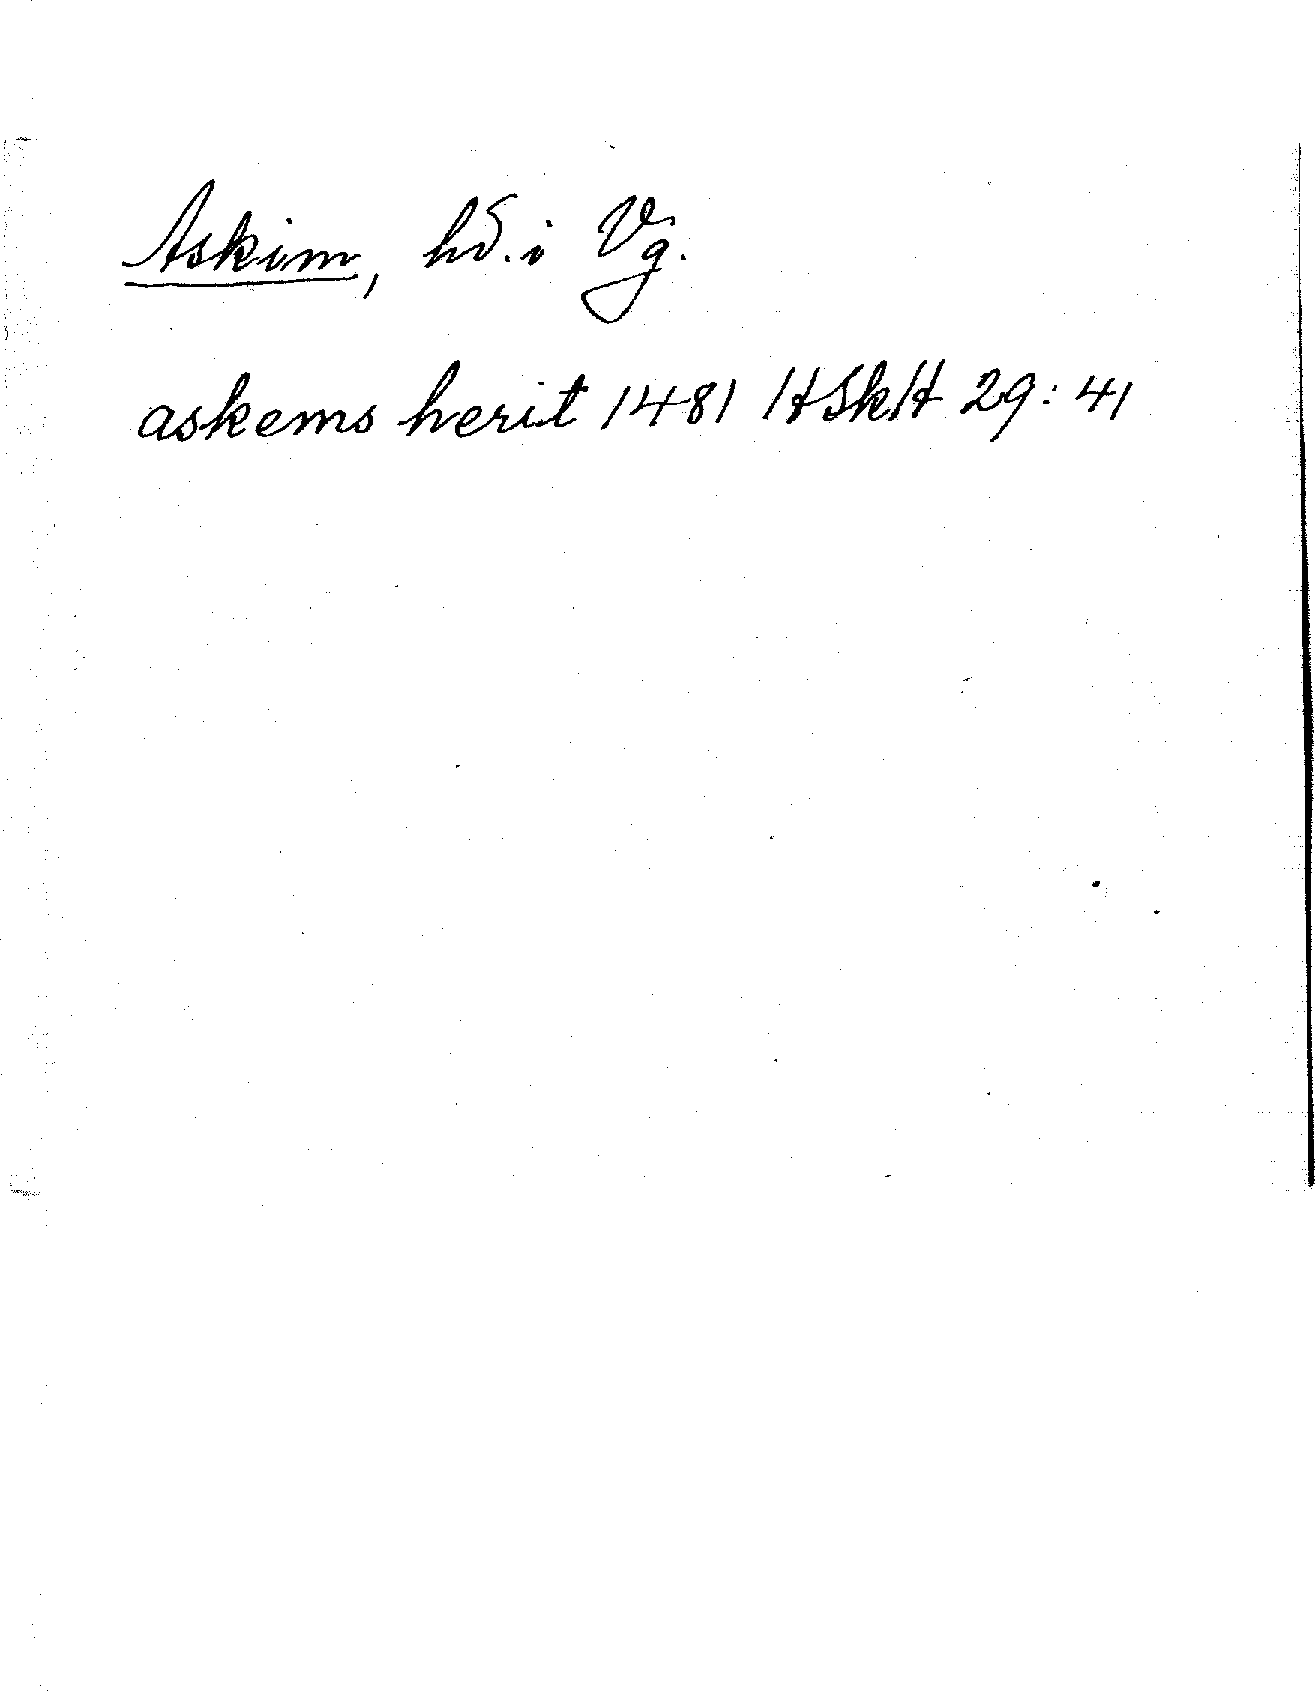 Askim, hd. i Vg.
askems herit 1481 HSkH 29:41